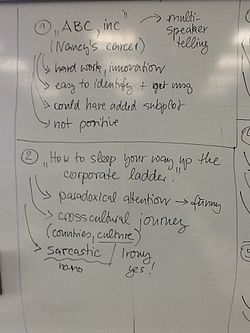 ① "ABC, inc" → multi-
speaker
telling
(Nancy's career)
→ hard work, innovation
→ easy to identify + get msg
→ could have added subplot
→ not positive
② "How to sleep your way up the
corporate ladder."
→ paradoxical attention → funny
→ crosscultural journey
(countries, culture)
→ Sarcastic / Irony
no no yes!